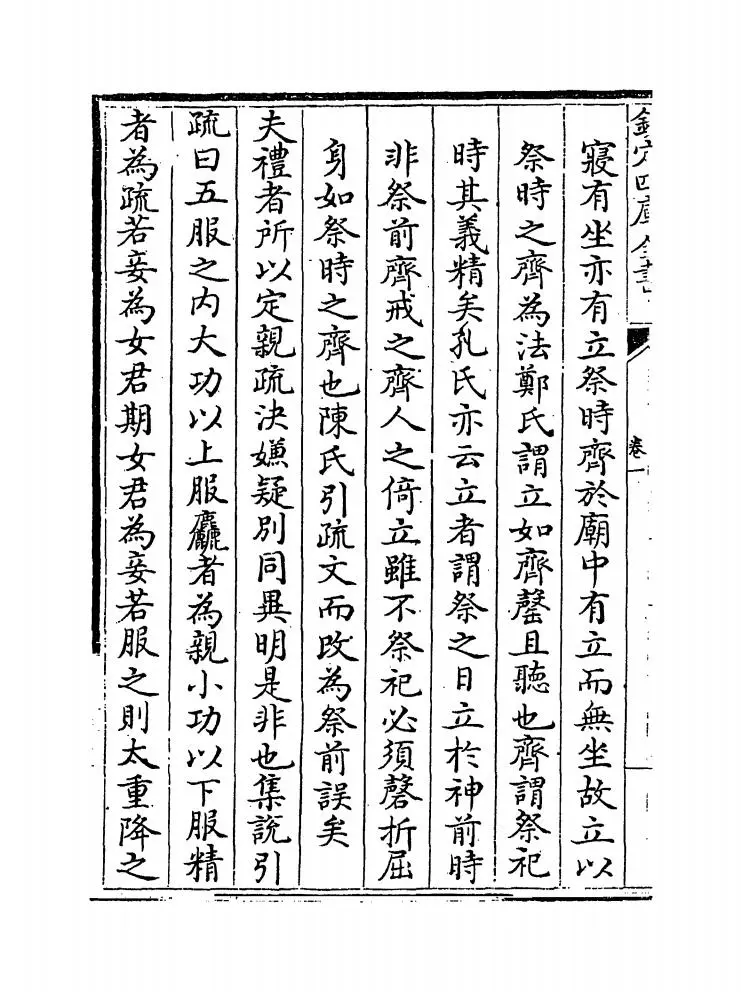 欽定四庫全書
卷一
寢有坐亦有立祭時齊於廟中有立而無坐故立以
祭時之齊為法鄭氏謂立如齊罄且聽也齊謂祭祀
時其義精矣孔氏亦云立者謂祭之日立於神前時
非祭前齊戒之齊人之倚立雖不祭祀必須磬折屈
身如祭時之齊也陳氏引疏文而改為祭前誤矣
夫禮者所以定親疏決嫌疑別同異明是非也集說引
疏曰五服之内大功以上服麤者為親小功以下服精
者為疏若妾為女君期女君為妾若服之則太重降之